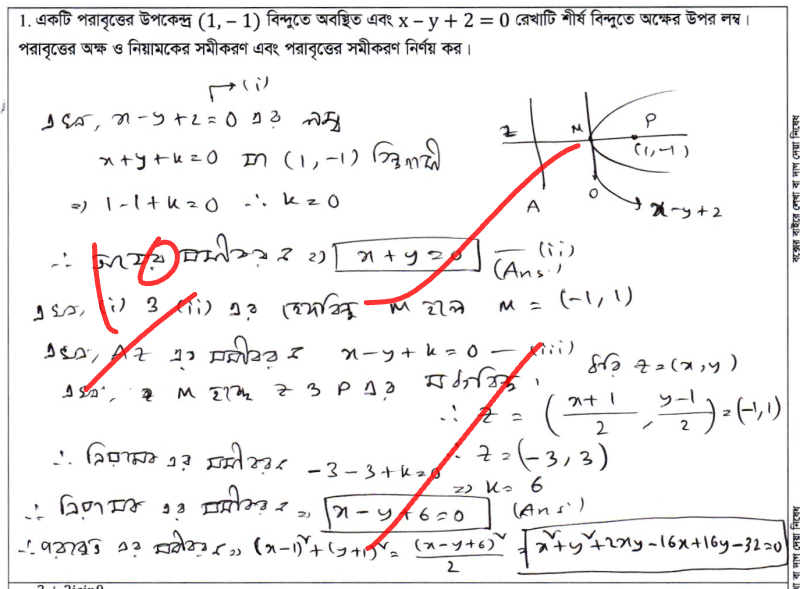 1. একটি পরাবৃত্তের উপকেন্দ্র (1, – 1) বিন্দুতে অবস্থিত এবং x – y + 2 = 0 রেখাটি শীর্ষ বিন্দুতে অক্ষের উপর লম্ব।
পরাবৃত্তের অক্ষ ও নিয়ামকের সমীকরণ এবং পরাবৃত্তের সমীকরণ নির্ণয় কর।
→ (i)
এখন, x-y+2=0 এর লম্ব
x+y+k=0 যা (1, -1) বিন্দুগামী
⇒ 1-1+k=0 ∴ k=0
Z M P
(1,-1)
A O x-y+2
∴ অক্ষের সমীকরণ ⇒ x+y=0 — (ii)
(Ans:)
এখন, (i) ও (ii) এর ছেদবিন্দু M হলে M = (-1, 1)
এখন, AZ এর সমীকরণ x-y+k=0 — (iii)
ধরি Z=(x,y)
এখন, M হচ্ছে Z ও P এর মধ্যবিন্দু।
∴ Z = (x+1/2, y-1/2) = (-1,1)
∴ Z=(-3,3)
∴ নিয়ামক এর সমীকরণ -3-3+k=0
⇒ k=6
∴ নিয়ামক এর সমীকরণ ⇒ x-y+6=0 (Ans:)
∴ পরাবৃত্ত এর সমীকরণ ⇒ (x-1)²+(y+1)² = (x-y+6)²/2 = x²+y²+2xy-16x+16y-32=0